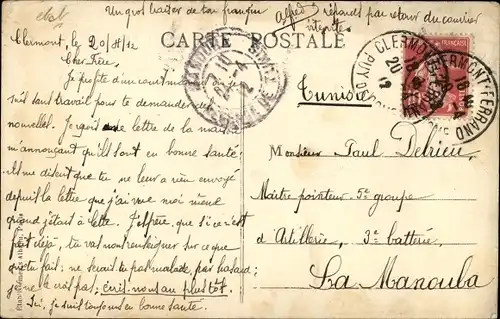 Un gros baiser de ton frangin
Alfred
réponds par retour du courrier
CARTE POSTALE
Clermont, le 20/4/12
Cher Frère,
Je profite d'un court moment où je
suis sans travail pour te demander des
nouvelles. Je reçois une lettre de la maison
m'annonçant qu'ils sont en bonne santé;
ils me disent que tu ne leur a rien envoyé
depuis la lettre que j'ai vue moi même
quand j'étais à Cette. J'espère, que si ce n'est
fait déjà, tu vas nous renseigner sur ce que
tu fait: ne serais tu pas malade, par hasard;
je ne le crois pas; écris-nous au plus tôt.
Ici, je suis toujours en bonne santé.
CLERMONT-FERRAND
PUY DE DOME
Tunisie
Monsieur Paul Delrieu
Maître pointeur 5e groupe
d'Artillerie, 3e batterie,
La Manouba